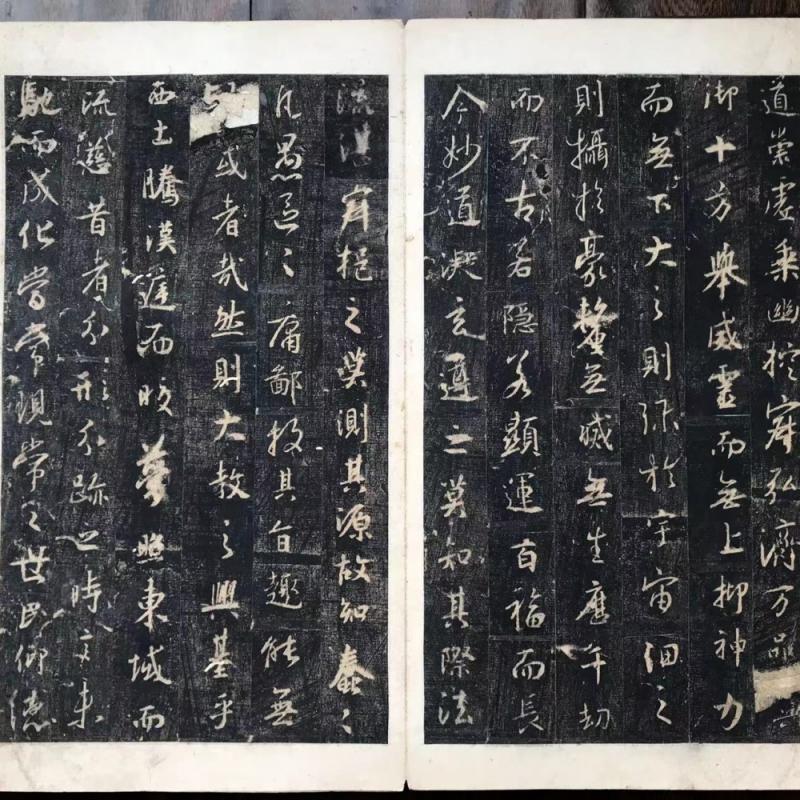 道崇虛乘幽控寂弘濟万品典
御十方舉威靈而無上抑神力
而無下大之則弥於宇宙細之
則攝於豪釐無滅無生歷千劫
而不古若隱若顯運百福而長
今妙道凝玄遵之莫知其際法
流湛寂挹之莫測其源故知蠢々
凡愚區々庸鄙投其旨趣能無
或者哉然則大教之興基乎
西土騰漢庭而皎夢照東域而
流慈昔者分形分跡之時言未
馳而成化當常現常之世民仰德